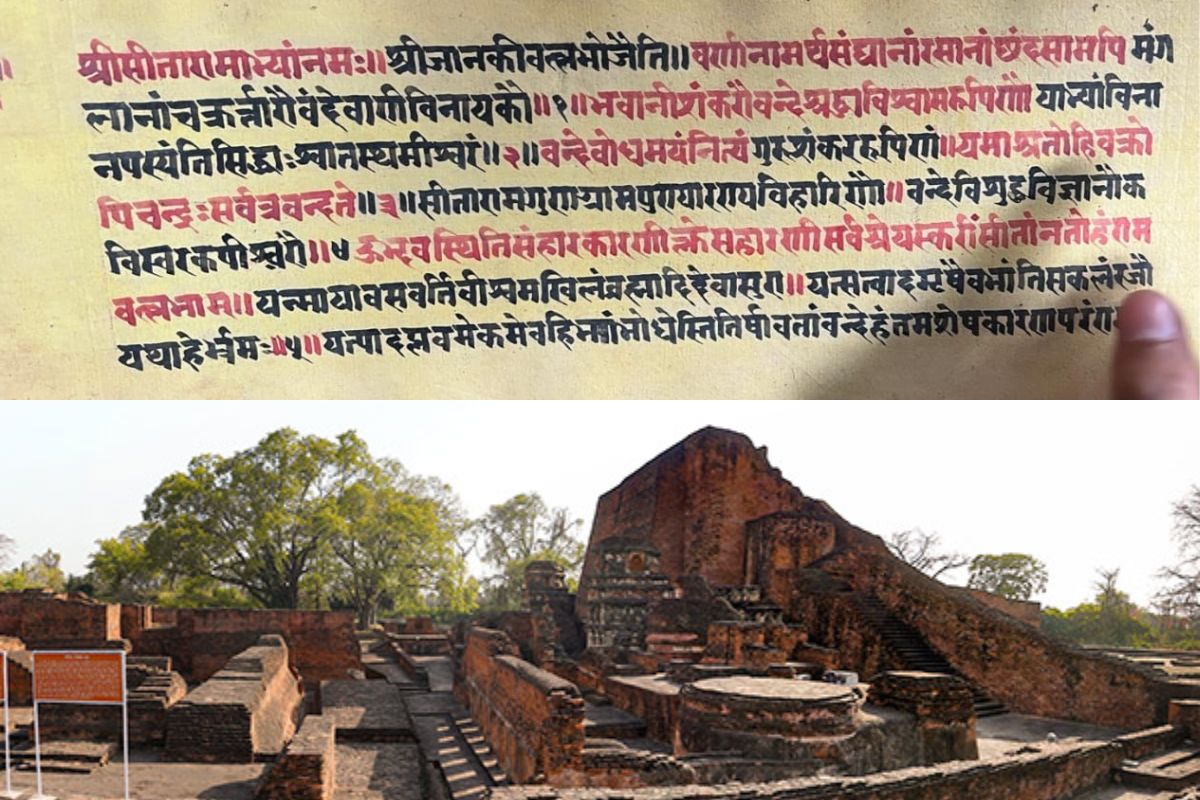 श्रीसीतारामाभ्यांनमः॥ श्रीजानकीवल्लभोजैति॥ वर्णानामर्थसंघानांरसानांछंदसामपि मंग
लानांचकर्त्तारौवंदेवाणीविनायकौ॥१॥ भवानीशंकरौवन्देश्रद्धाविश्वासरूपिणौ॥ याभ्यांविना
नपस्यंतिसिद्धाःस्वांतस्थमीश्वरं॥२॥ वन्देबोधमयंनित्यं गुरुशंकररूपिणं॥ यमाश्रितोहिवक्रो
पिचन्द्रःसर्वत्रवन्दते॥३॥ सीतारामगुणग्रामपुण्यारण्यविहारिणौ॥ वन्देविशुद्धविज्ञानौक
विस्वरकपीश्वरौ॥४ ऊद्भवस्थितिसंहारकारणीक्लेसहारणीसर्वश्रेयस्करींसीतांनतोहंराम
वल्लभाम॥ यन्मायावसवर्त्तिवीश्वमखिलंब्रह्मादिदेवासुरा॥ यत्सत्वादमृषैवभांतिसकलंरजौ
यथाहेर्भ्रमः॥५॥ यत्पादप्लवमेकमेवहिभवांभोधेस्तितिर्षावतांवन्देहंतमशेषकारणपरं